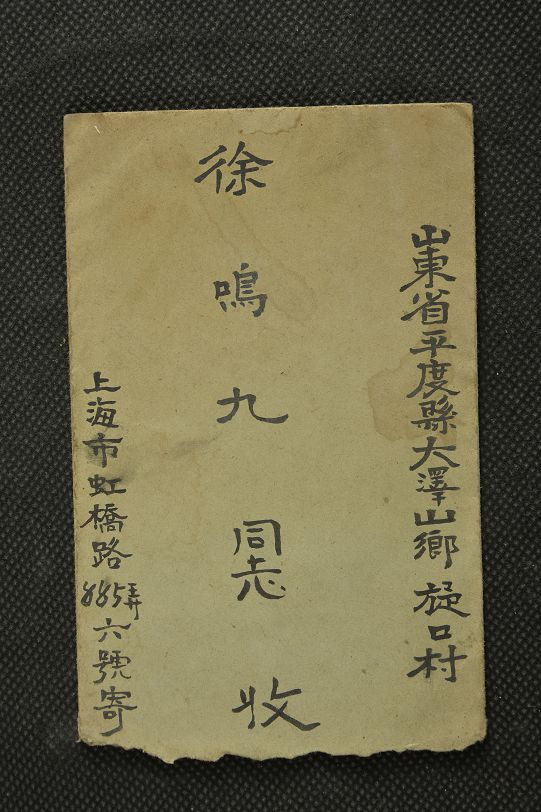 山東省平度縣大澤山鄉旋口村
徐鳴九同志收
上海市虹橋路885弄六號寄